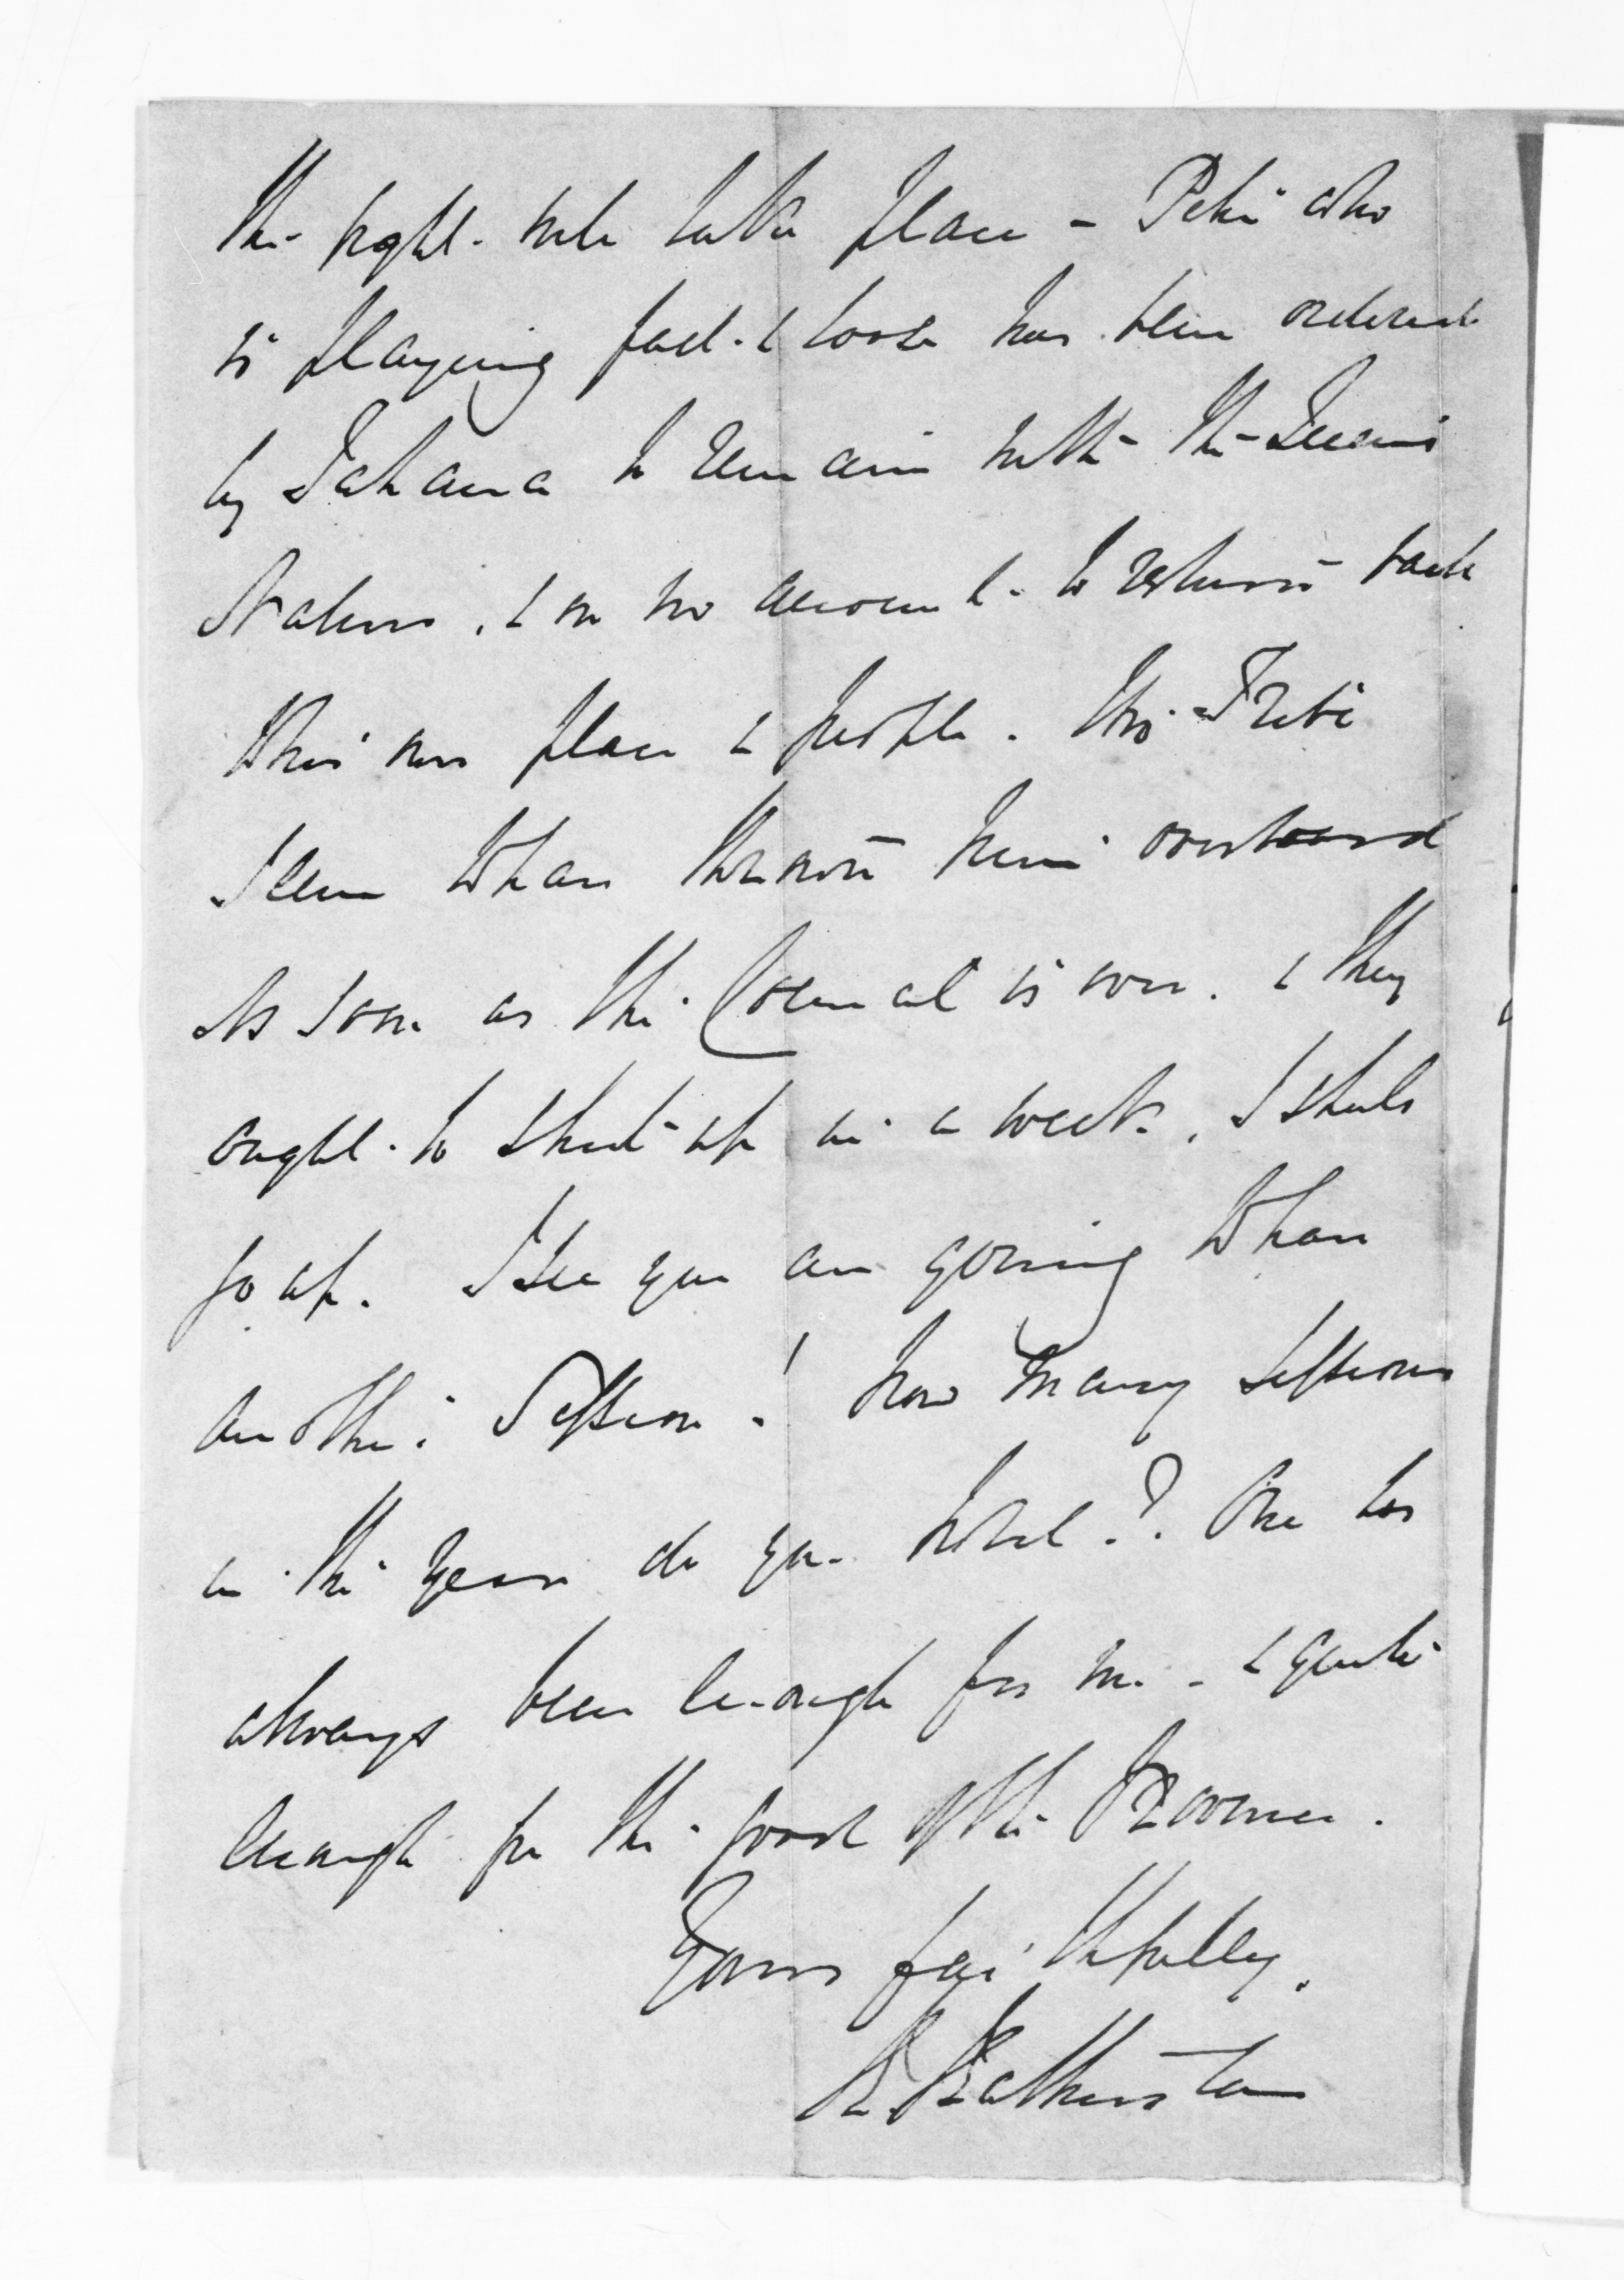 the fight will take place - Pitiwho
is playing fast & loose has been ordered
by Takana to remain with the Queens
natives, & on no account to return back
this own place & people. His Tribe
seem to have thrown him overboard
As soon as the Council is over. & they
ought to shut up in a week, I shall
go up. I see you are going to have
another Session! how many Sessions
in the year do you hold? One has
always been enough for me - & quite
enough for the good of the Province.
Yours faithfully.